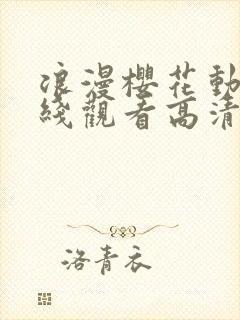 浪漫櫻花動
綫觀看高清
洛青衣